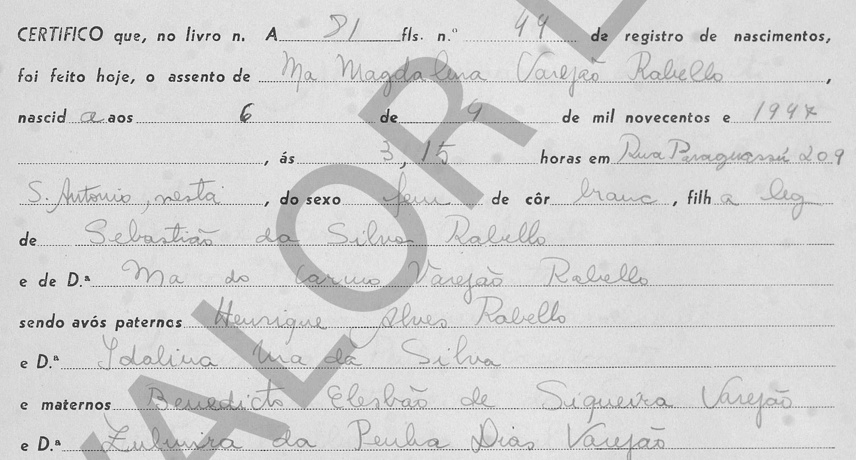 CERTIFICO que, no livro n. A 81 fls. n.º 44 de registro de nascimentos,
foi feito hoje, o assento de Ma Magdalena Varejão Rabello,
nascid a aos 6 de 9 de mil novecentos e 1947
, ás 3,15 horas em Rua Paraguassú 209
S. Antonio, nesta, do sexo fem de côr branc, filh a leg
de Sebastião da Silva Rabello
e de D.ª Ma do Carmo Varejão Rabello
sendo avós paternos Henrique Alves Rabello
e D.ª Idalina Ma da Silva
e maternos Benedicto Elesbão de Siqueira Varejão
e D.ª Zulmira da Penha Dias Varejão
VALOR